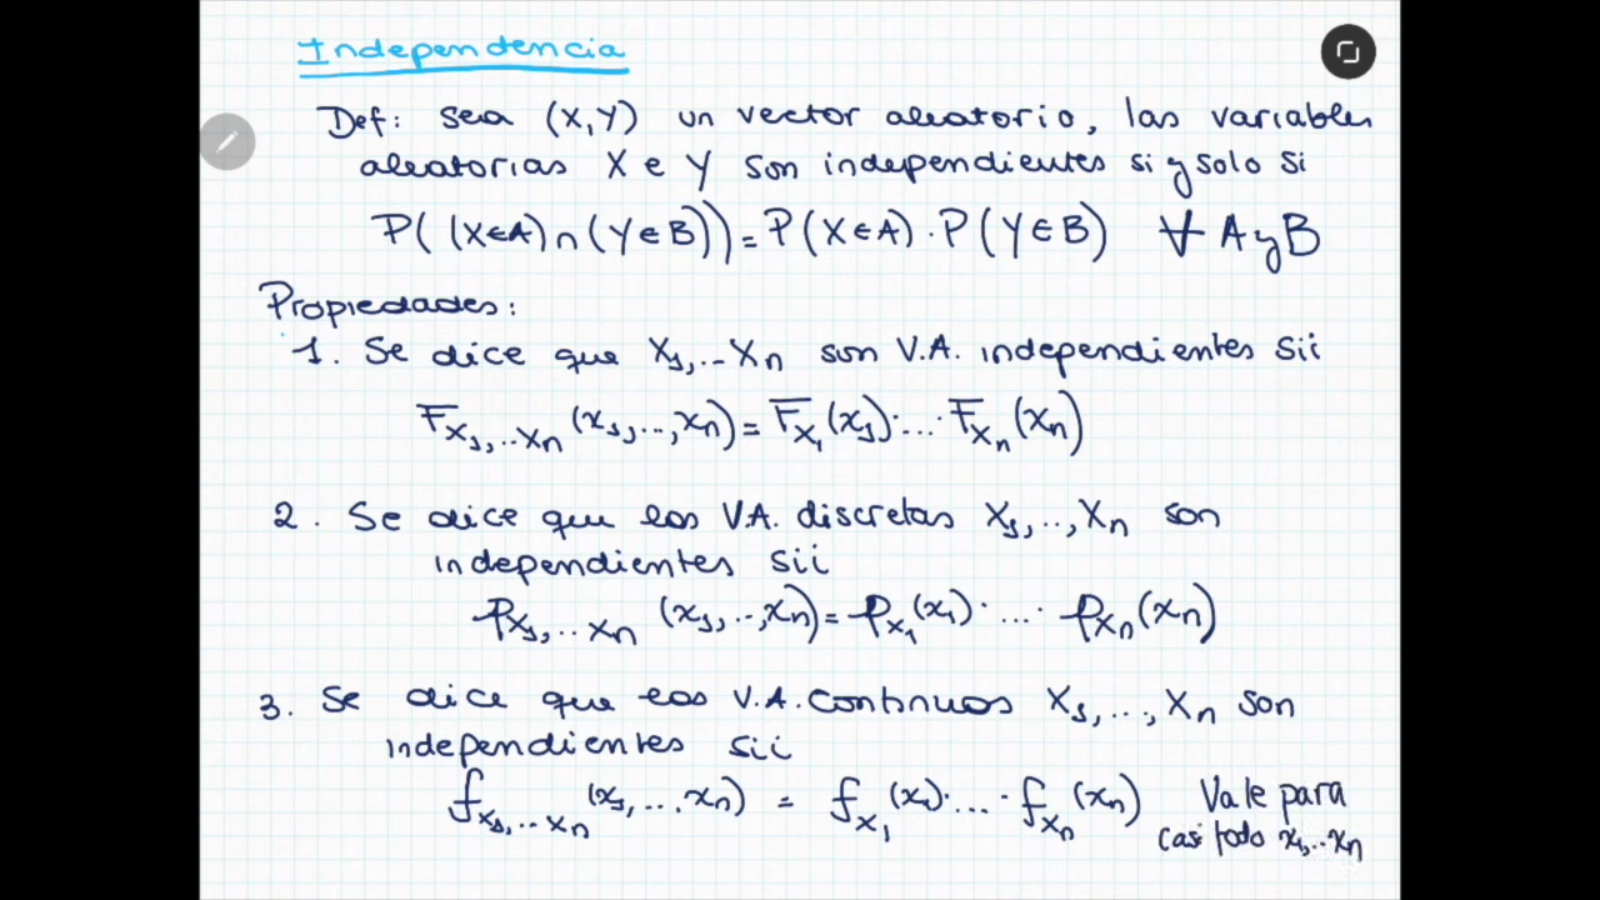 Independencia
Def: sea (X,Y) un vector aleatorio, las variables
aleatorias X e Y son independientes si y solo si
P((X∈A)∩(Y∈B))=P(X∈A)·P(Y∈B) ∀ A y B
Propiedades:
1. Se dice que X₁,..Xₙ son V.A. independientes sii
F_{X₁,..Xₙ}(x₁,..,xₙ)=F_{X₁}(x₁)·...·F_{Xₙ}(xₙ)
2. Se dice que las V.A. discretas X₁,..,Xₙ son
independientes sii
p_{X₁,..Xₙ}(x₁,..,xₙ)=p_{X₁}(x₁)·...·p_{Xₙ}(xₙ)
3. Se dice que las V.A. continuas X₁,...,Xₙ son
independientes sii
f_{X₁,..Xₙ}(x₁,..,xₙ) = f_{X₁}(x₁)·...·f_{Xₙ}(xₙ) Vale para
casi todo x₁,..xₙ